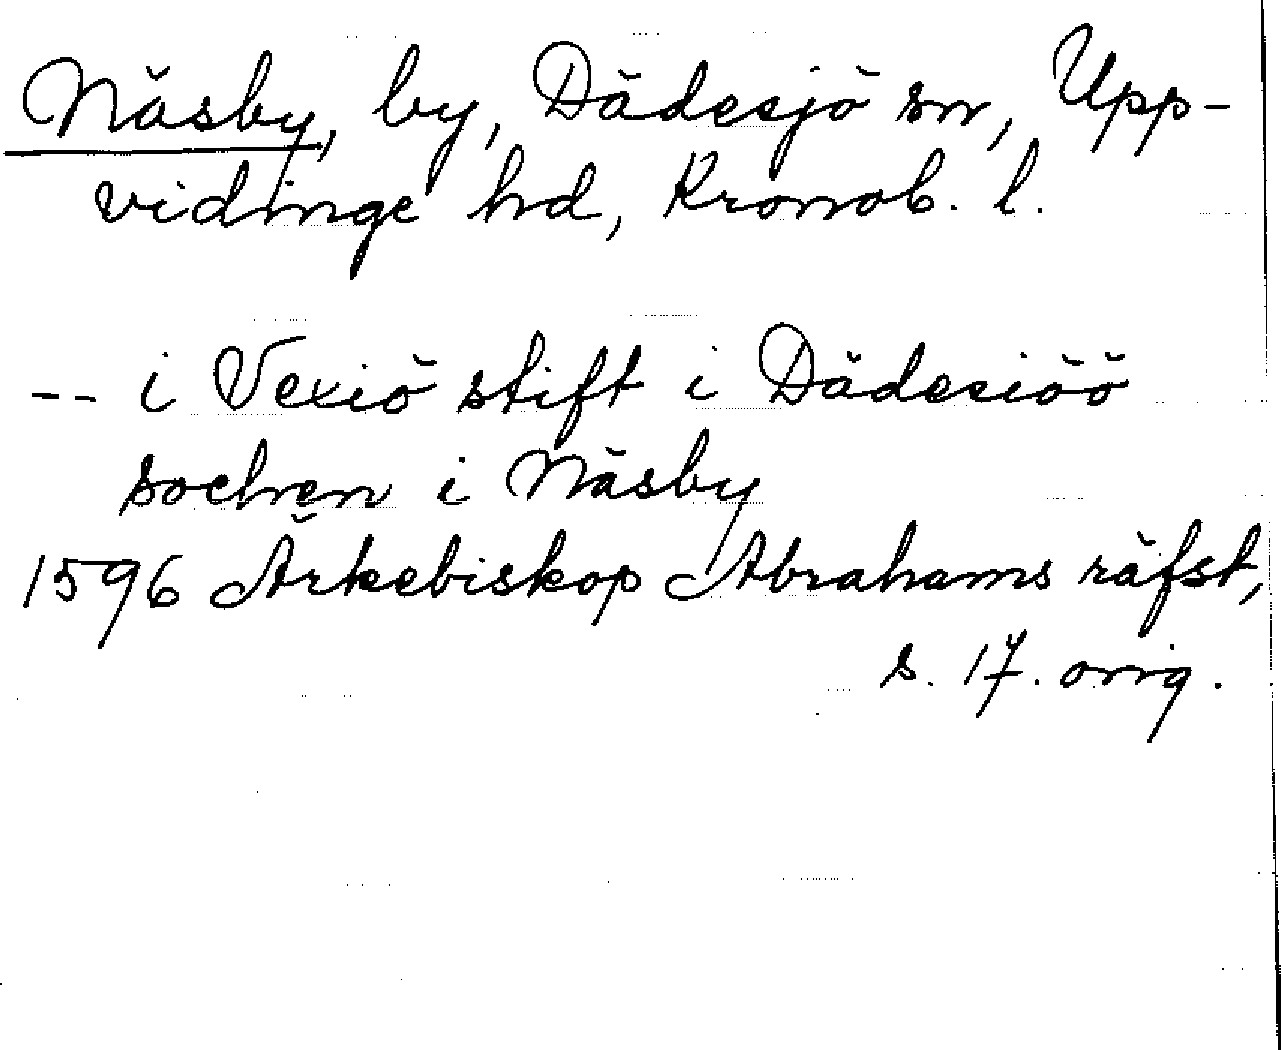 Näsby, by, Dädesjö sn, Upp-
vidinge hd, Kronob. l.
-- i Vexiö stift i Dädesiöö
sochen i Näsby
1596 Ärkebiskop Abrahams räfst,
s. 17. orig.